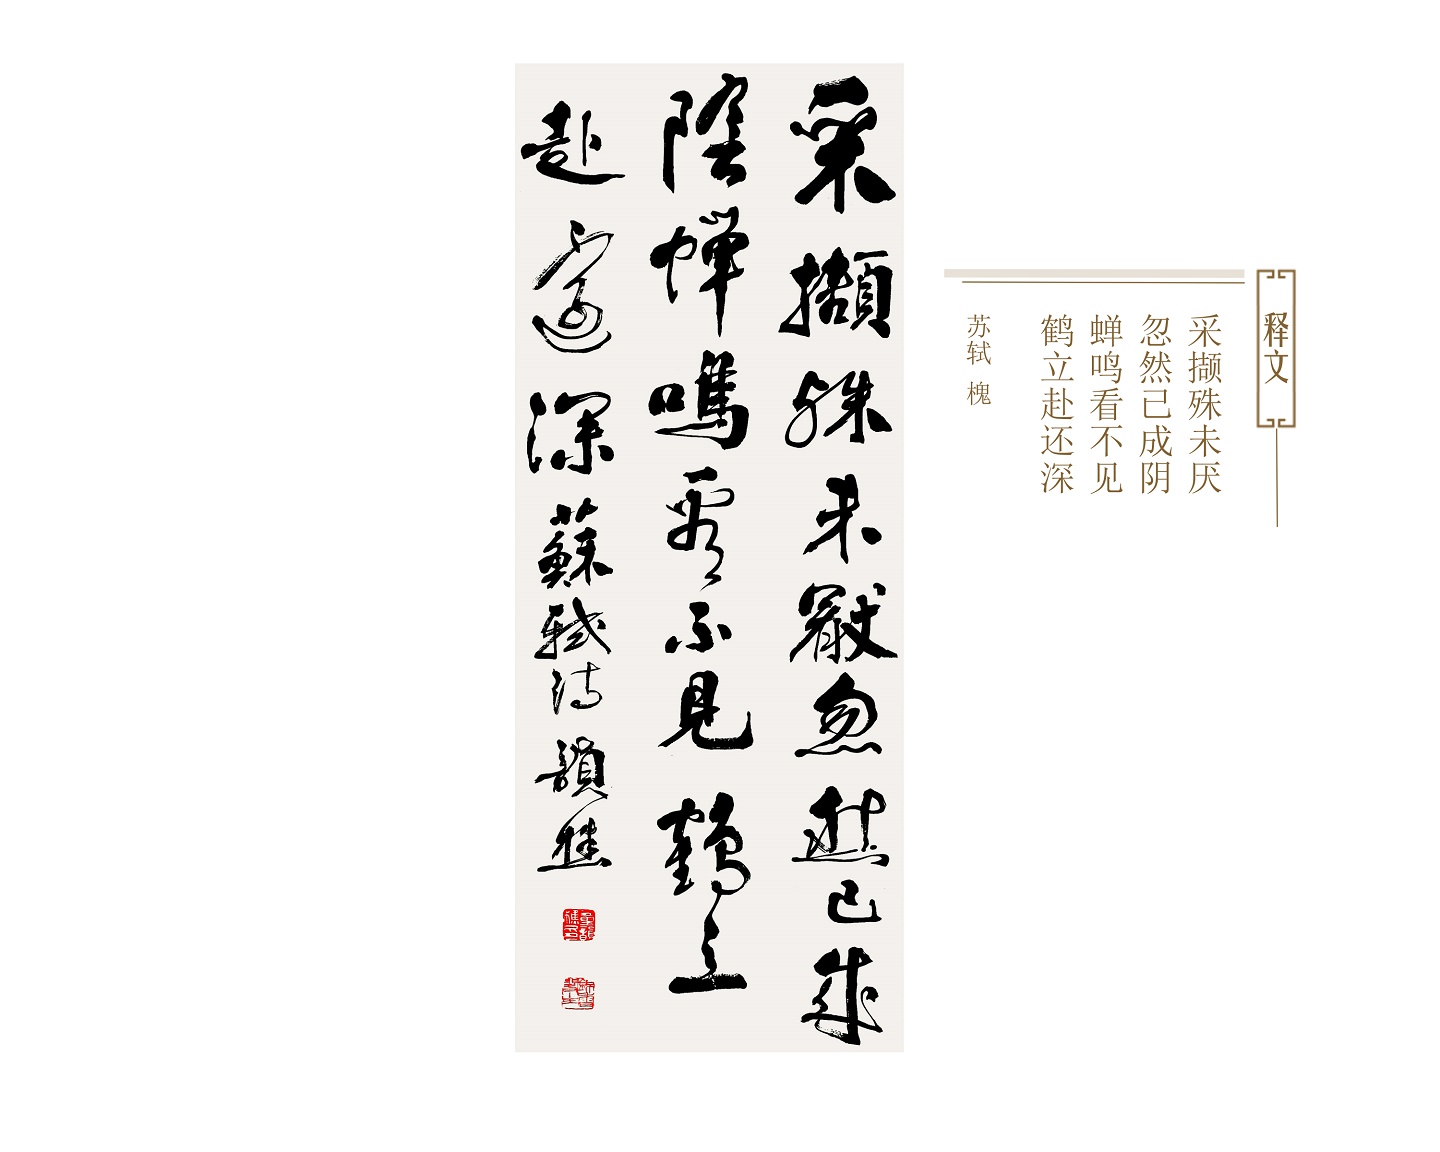 释文
采撷殊未厌
忽然已成阴
蝉鸣看不见
鹤立赴还深
苏轼 槐
采擷殊未厭忽然已成
陰蟬鳴看不見鶴立
赴還深蘇軾詩韻樵